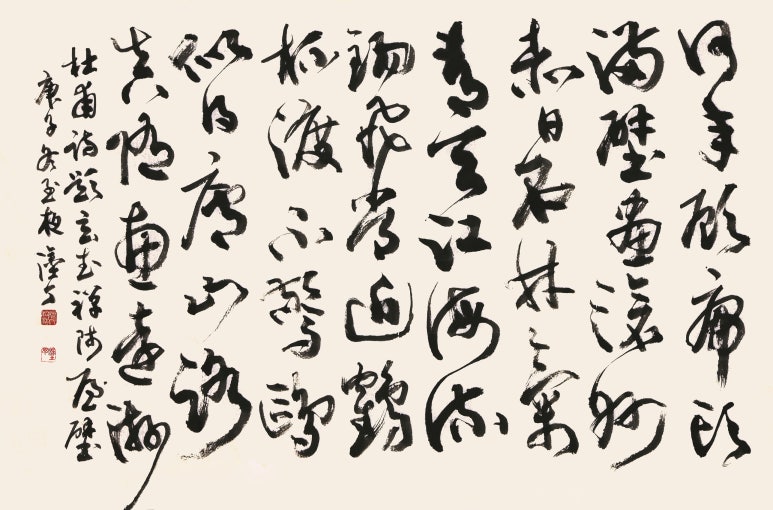 何年顧虎頭
滿壁畫滄州
赤日石林氣
青天江海流
錫飛常近鶴
杯渡不驚鷗
似得廬山路
真隨惠遠游
杜甫詩題玄武禪師屋壁
庚子冬至